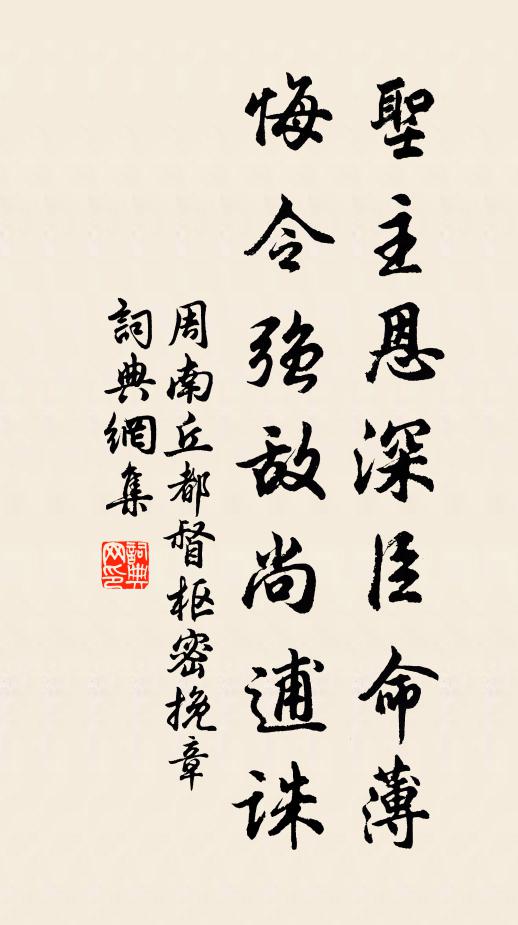 聖主恩深臣命薄
悔令強敵尚逋誅
周南丘都督枢密挽章
詞典網集
詞典网印